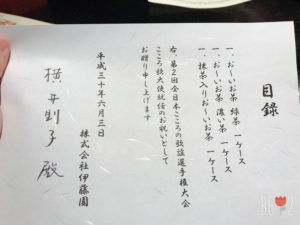 目録
一、お～いお茶 緑茶 一ケース
一、お～いお茶 濃い茶 一ケース
一、抹茶入りお～いお茶 一ケース
右、第2回全日本こころの歌謡選手権大会
こころ歌大使就任のお祝いとして
お贈り申し上げます
平成三十年六月三日
株式会社伊藤園
殿